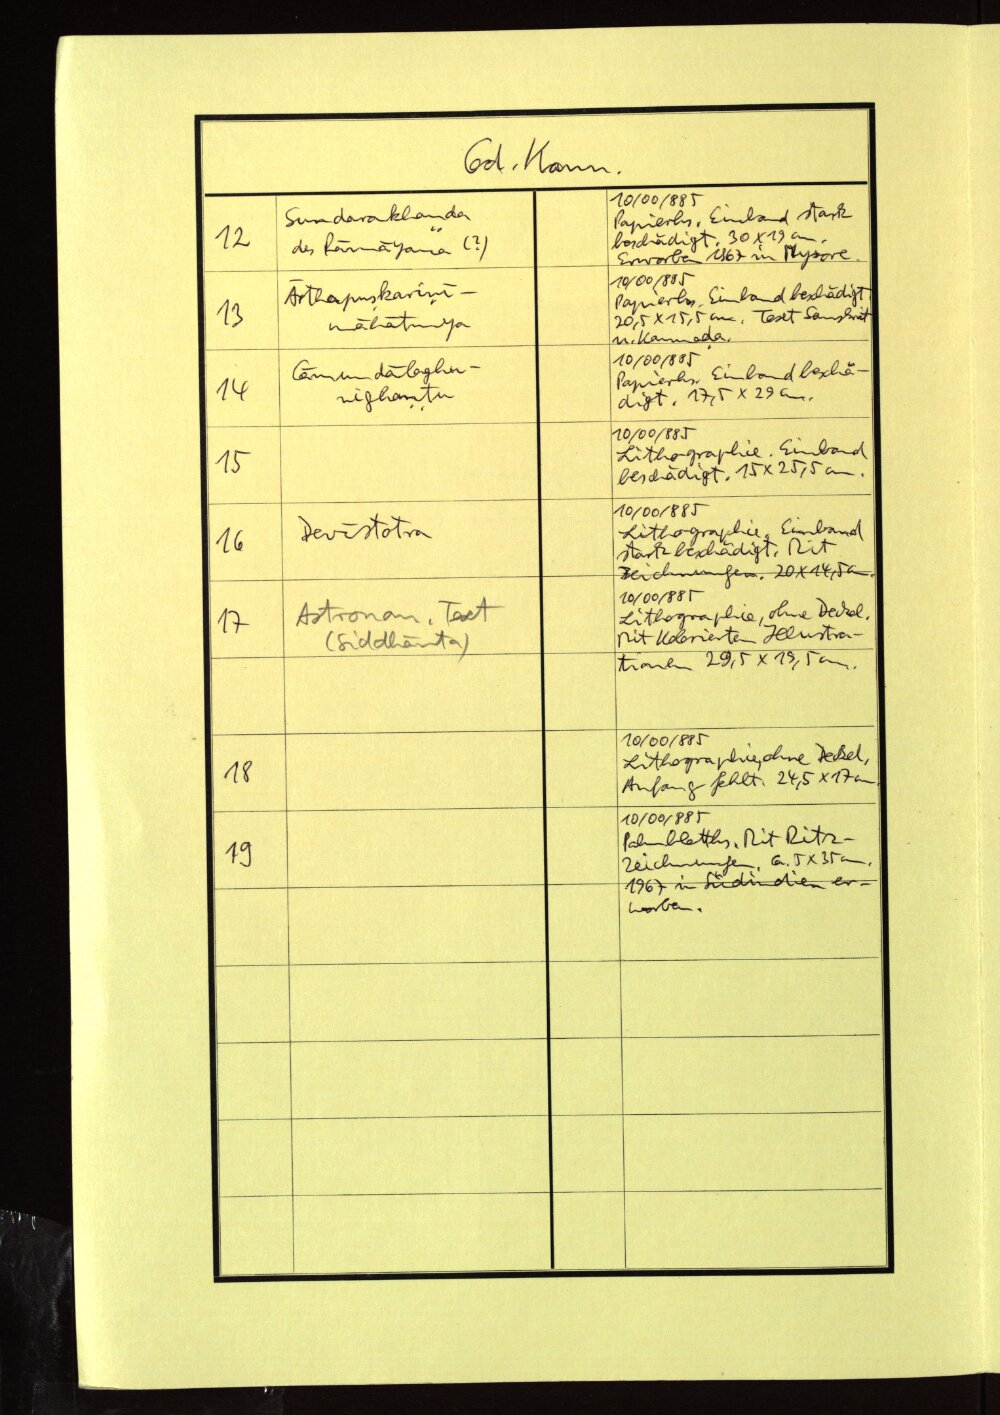 Cod. Kann.
12
Sundarakhāṇḍa
des Rāmāyaṇa (?)
10/00/885
Papierhs. Einband stark
beschädigt. 30 x 19 cm.
Erworben 1967 in Mysore.
13
māhātmya
10/00/885
Papierhs. Einband beschädigt.
20,5 x 15,5 cm. Text Sanskrit
u. Kannaḍa.
14
Cāmuṇḍālaghu-
nighaṇṭu
10/00/885
Papierhs. Einband beschä-
digt. 17,5 x 29 cm.
15
10/00/885
Lithographie. Einband
beschädigt. 15 x 25,5 cm.
16
Devīstotra
10/00/885
Lithographie. Einband
stark beschädigt. Mit
Zeichnungen. 20 x 14,5 cm.
17
Astronom. Text
(Siddhānta)
10/00/885
Lithographie, ohne Deckel.
Mit kolorierten Illustra-
tionen 29,5 x 19,5 cm.
18
10/00/885
Lithographie, ohne Deckel,
Anfang fehlt. 24,5 x 17 cm
19
10/00/885
Palmblatths. Mit Ritz-
zeichnungen. ca. 5 x 35 cm.
1967 in Südindien er-
worben.